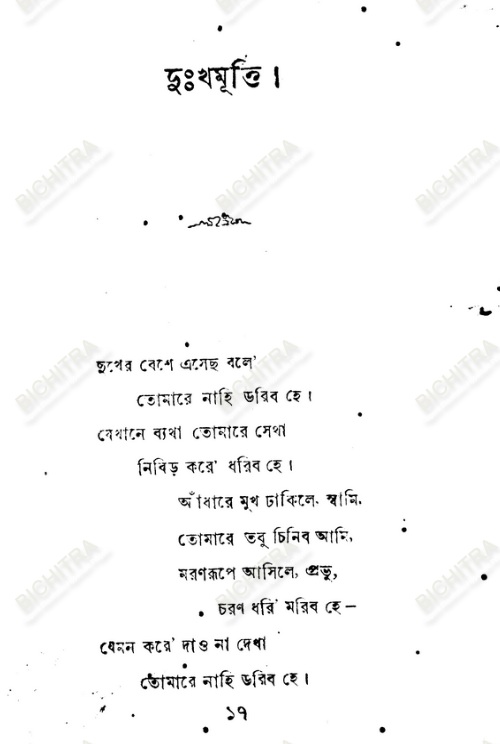 দুঃখমূর্ত্তি।
দুখের বেশে এসেছ বলে'
তোমারে নাহি ডরিব হে।
যেখানে ব্যথা তোমারে সেথা
নিবিড় করে' ধরিব হে।
আঁধারে মুখ ঢাকিলে, স্বামি,
তোমারে তবু চিনিব আমি,
মরণরূপে আসিলে, প্রভু,
চরণ ধরি' মরিব হে—
যেমন করে' দাও না দেখা
তোমারে নাহি ডরিব হে।
১৭
BICHITRA